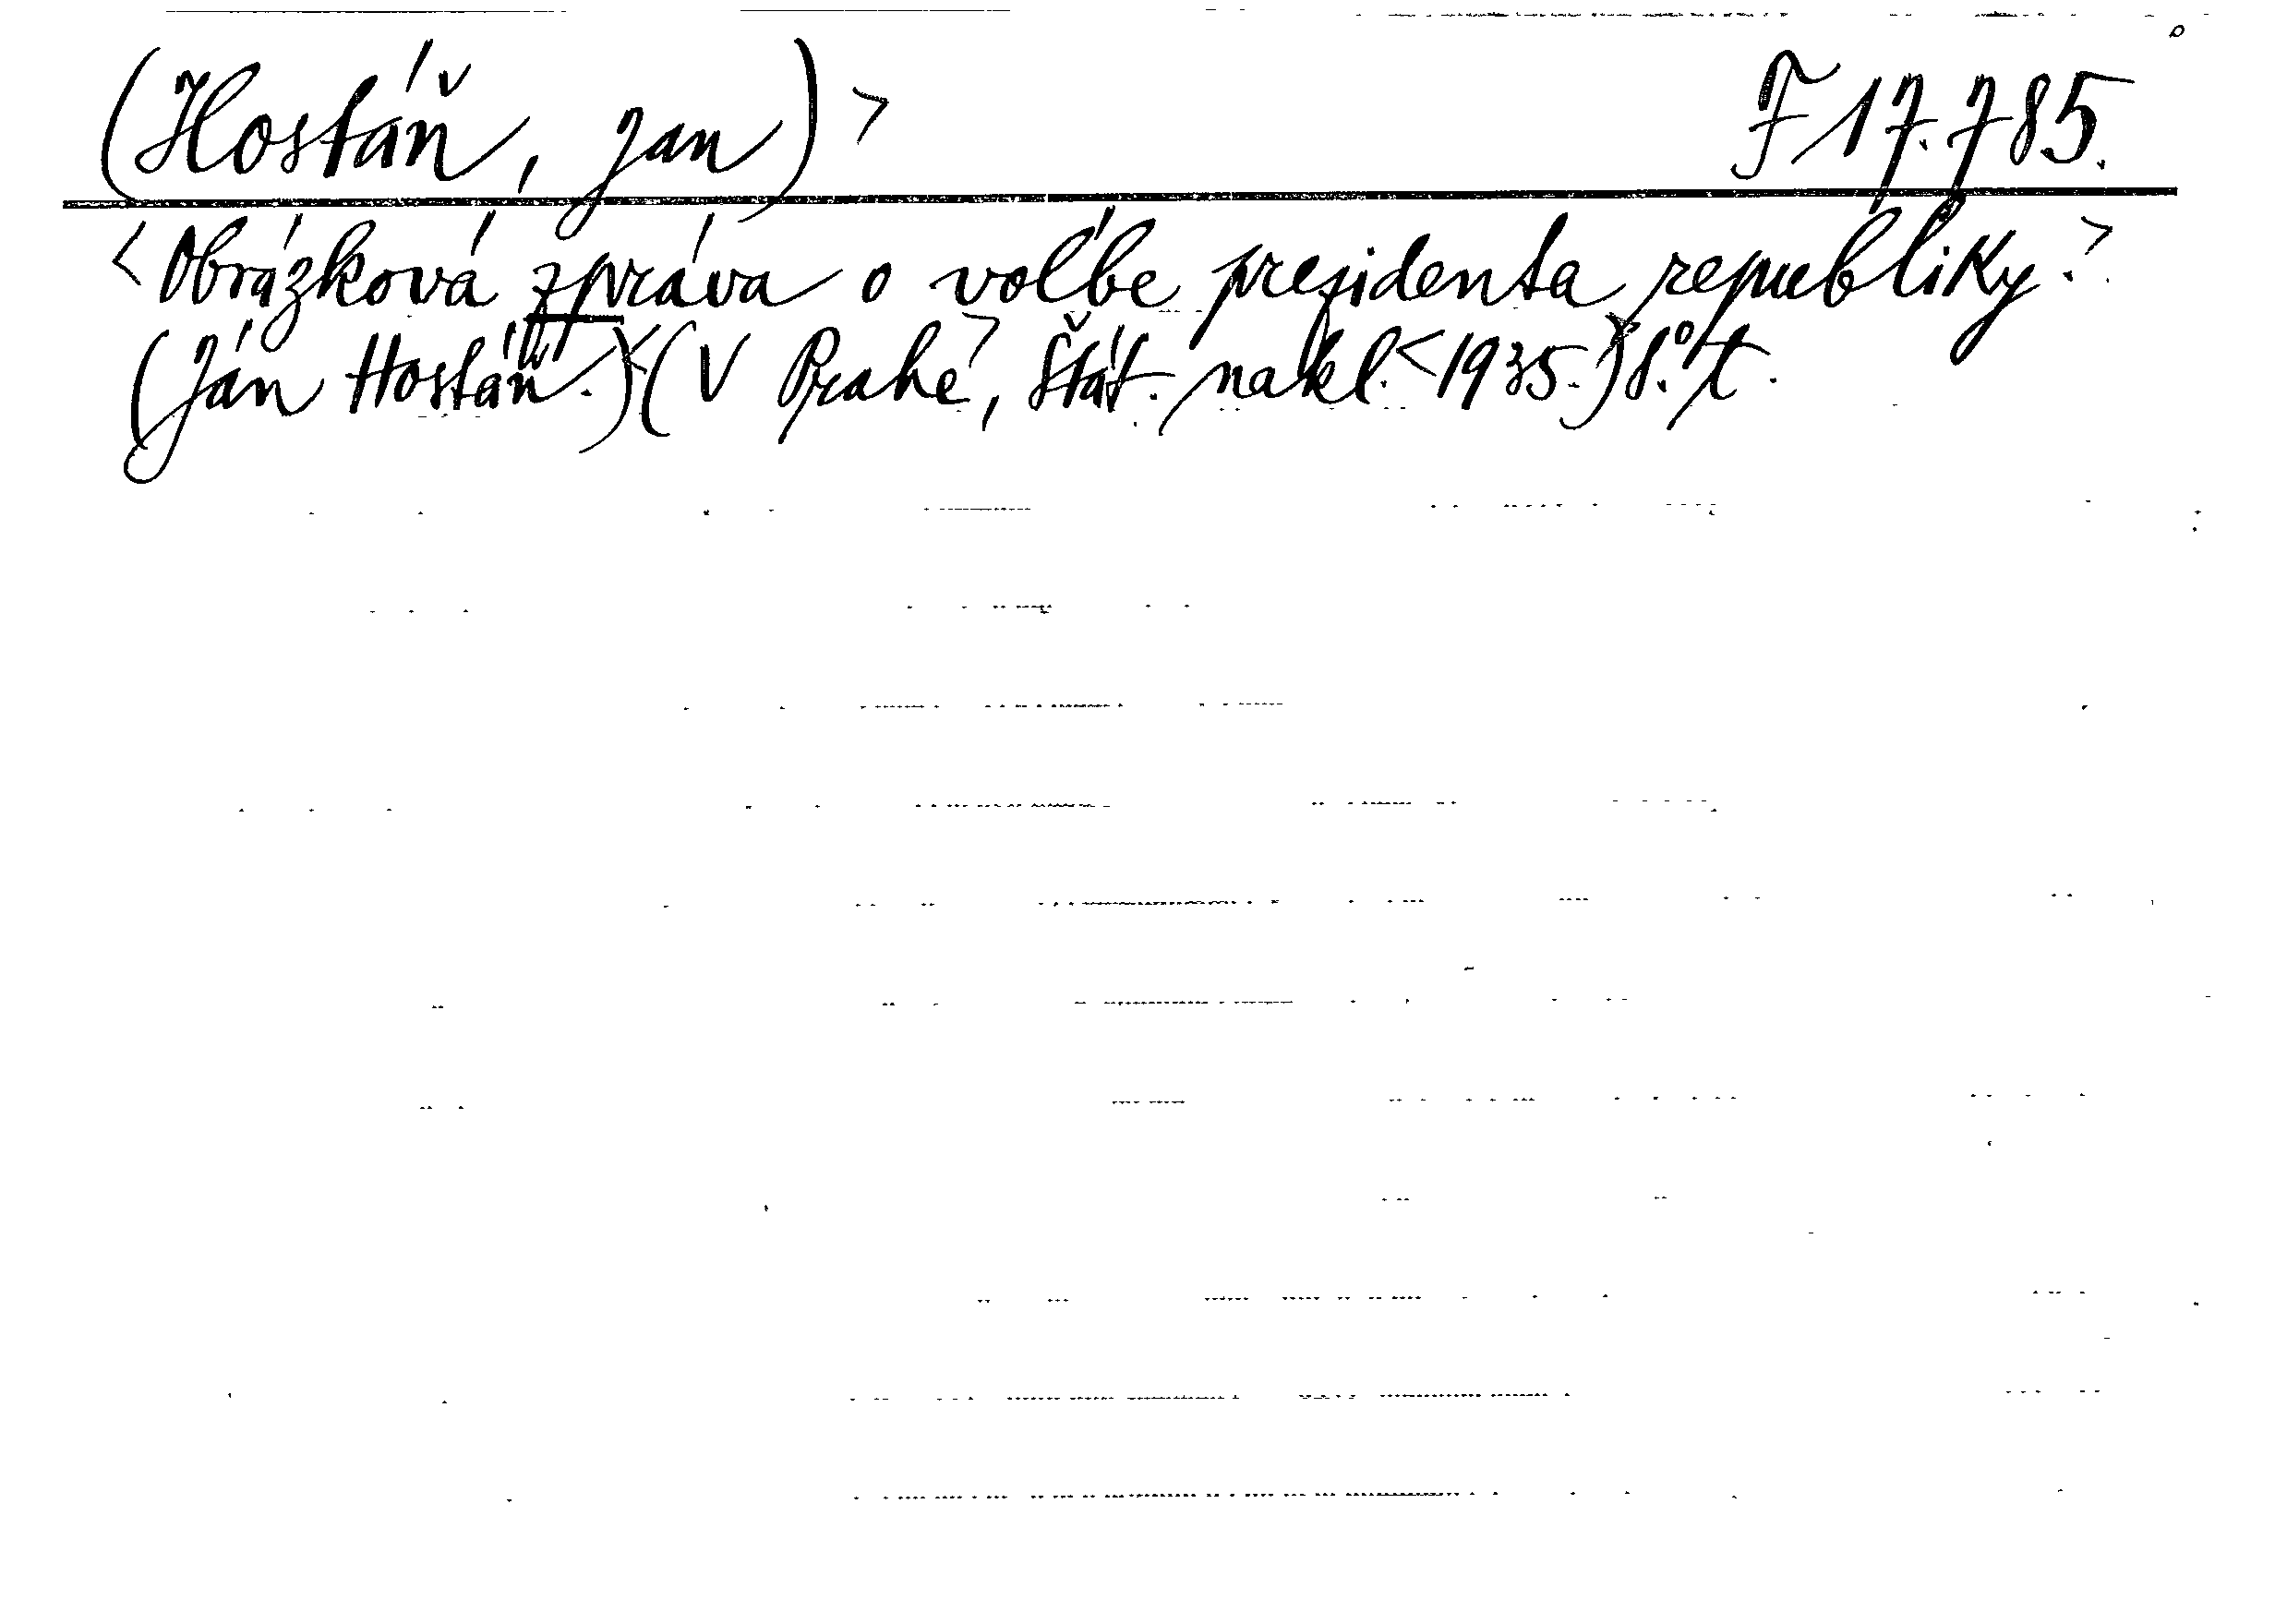 (Hostáň, Jan)> F 17.785.
<Obrázková zpráva o voľbe prezidenta republiky.>
(Ján Hostáň.)<(V Prahe>, Štát. nakl. <1935.)> 8.° t.